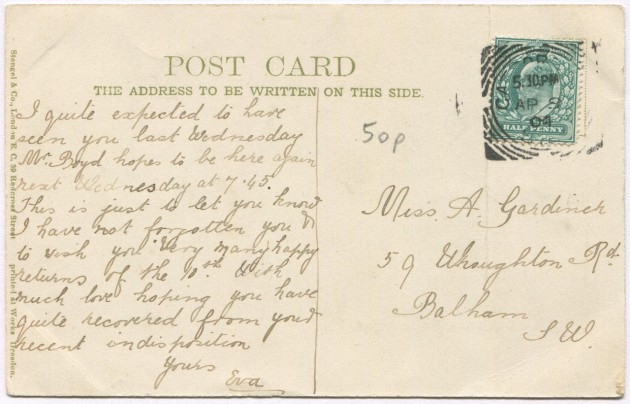 POST CARD
THE ADDRESS TO BE WRITTEN ON THIS SIDE.
I quite expected to have
seen you last Wednesday
Mr. Boyd hopes to be here again
next Wednesday at 7.45.
This is just to let you know
I have not forgotten you &
to wish you very many happy
returns of the 10th With
much love hoping you have
quite recovered from your
recent indisposition
Yours
Eva
50p
5.30PM
AP
04
HALF PENNY
Miss. A. Gardiner
59 Wroughton Rd.
Balham
S.W.
Stengel & Co., London E.C. 39 Redcross Street
printed at Works Dresden.